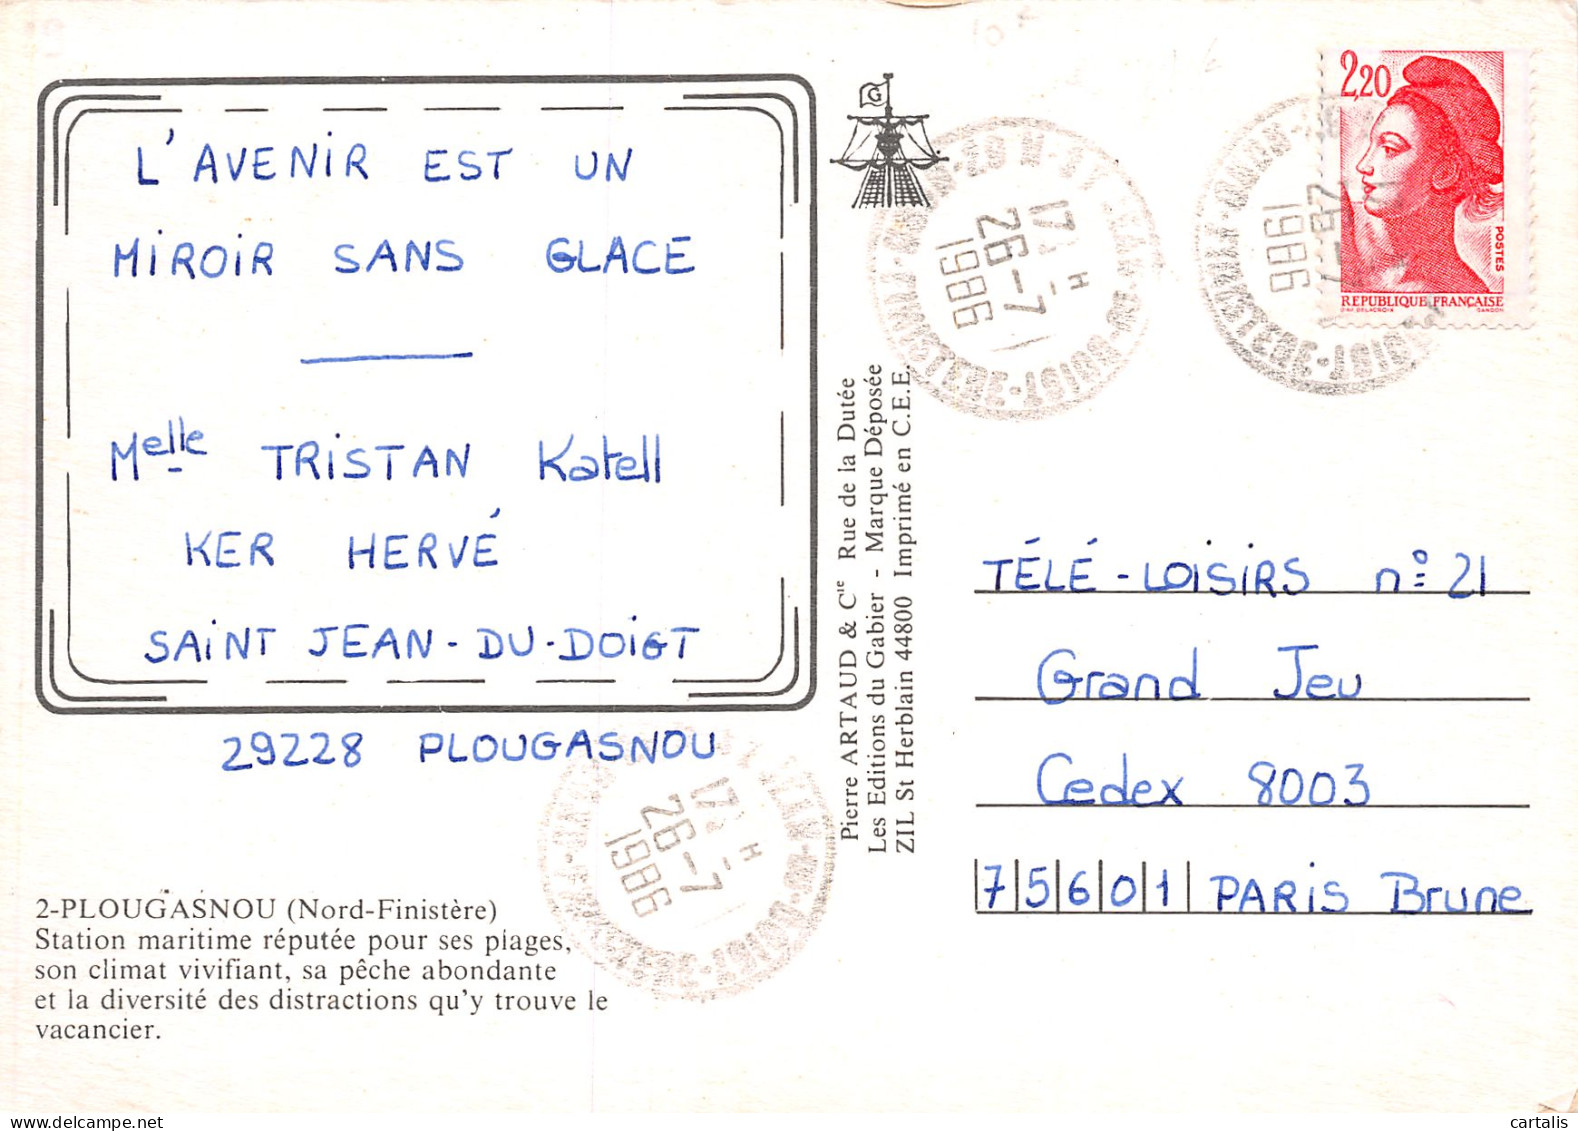 L'AVENIR EST UN
MIROIR SANS GLACE
Melle TRISTAN Katell
KER HERVÉ
SAINT JEAN-DU-DOIGT
29228 PLOUGASNOU
2-PLOUGASNOU (Nord-Finistère)
Station maritime réputée pour ses plages,
son climat vivifiant, sa pêche abondante
et la diversité des distractions qu'y trouve le
vacancier.
Pierre ARTAUD & Cie Rue de la Dutée
Les Editions du Gabier - Marque Déposée
ZIL St Herblain 44800 Imprimé en C.E.E.
G
17 H
26-7
1986
26-7
1986
17 H
26-7
1986
2,20
POSTES
REPUBLIQUE FRANÇAISE
D'AP. DELACROIX GANDON
TÉLÉ-LOISIRS n° 21
Grand Jeu
Cedex 8003
75601 PARIS Brune
cartalis